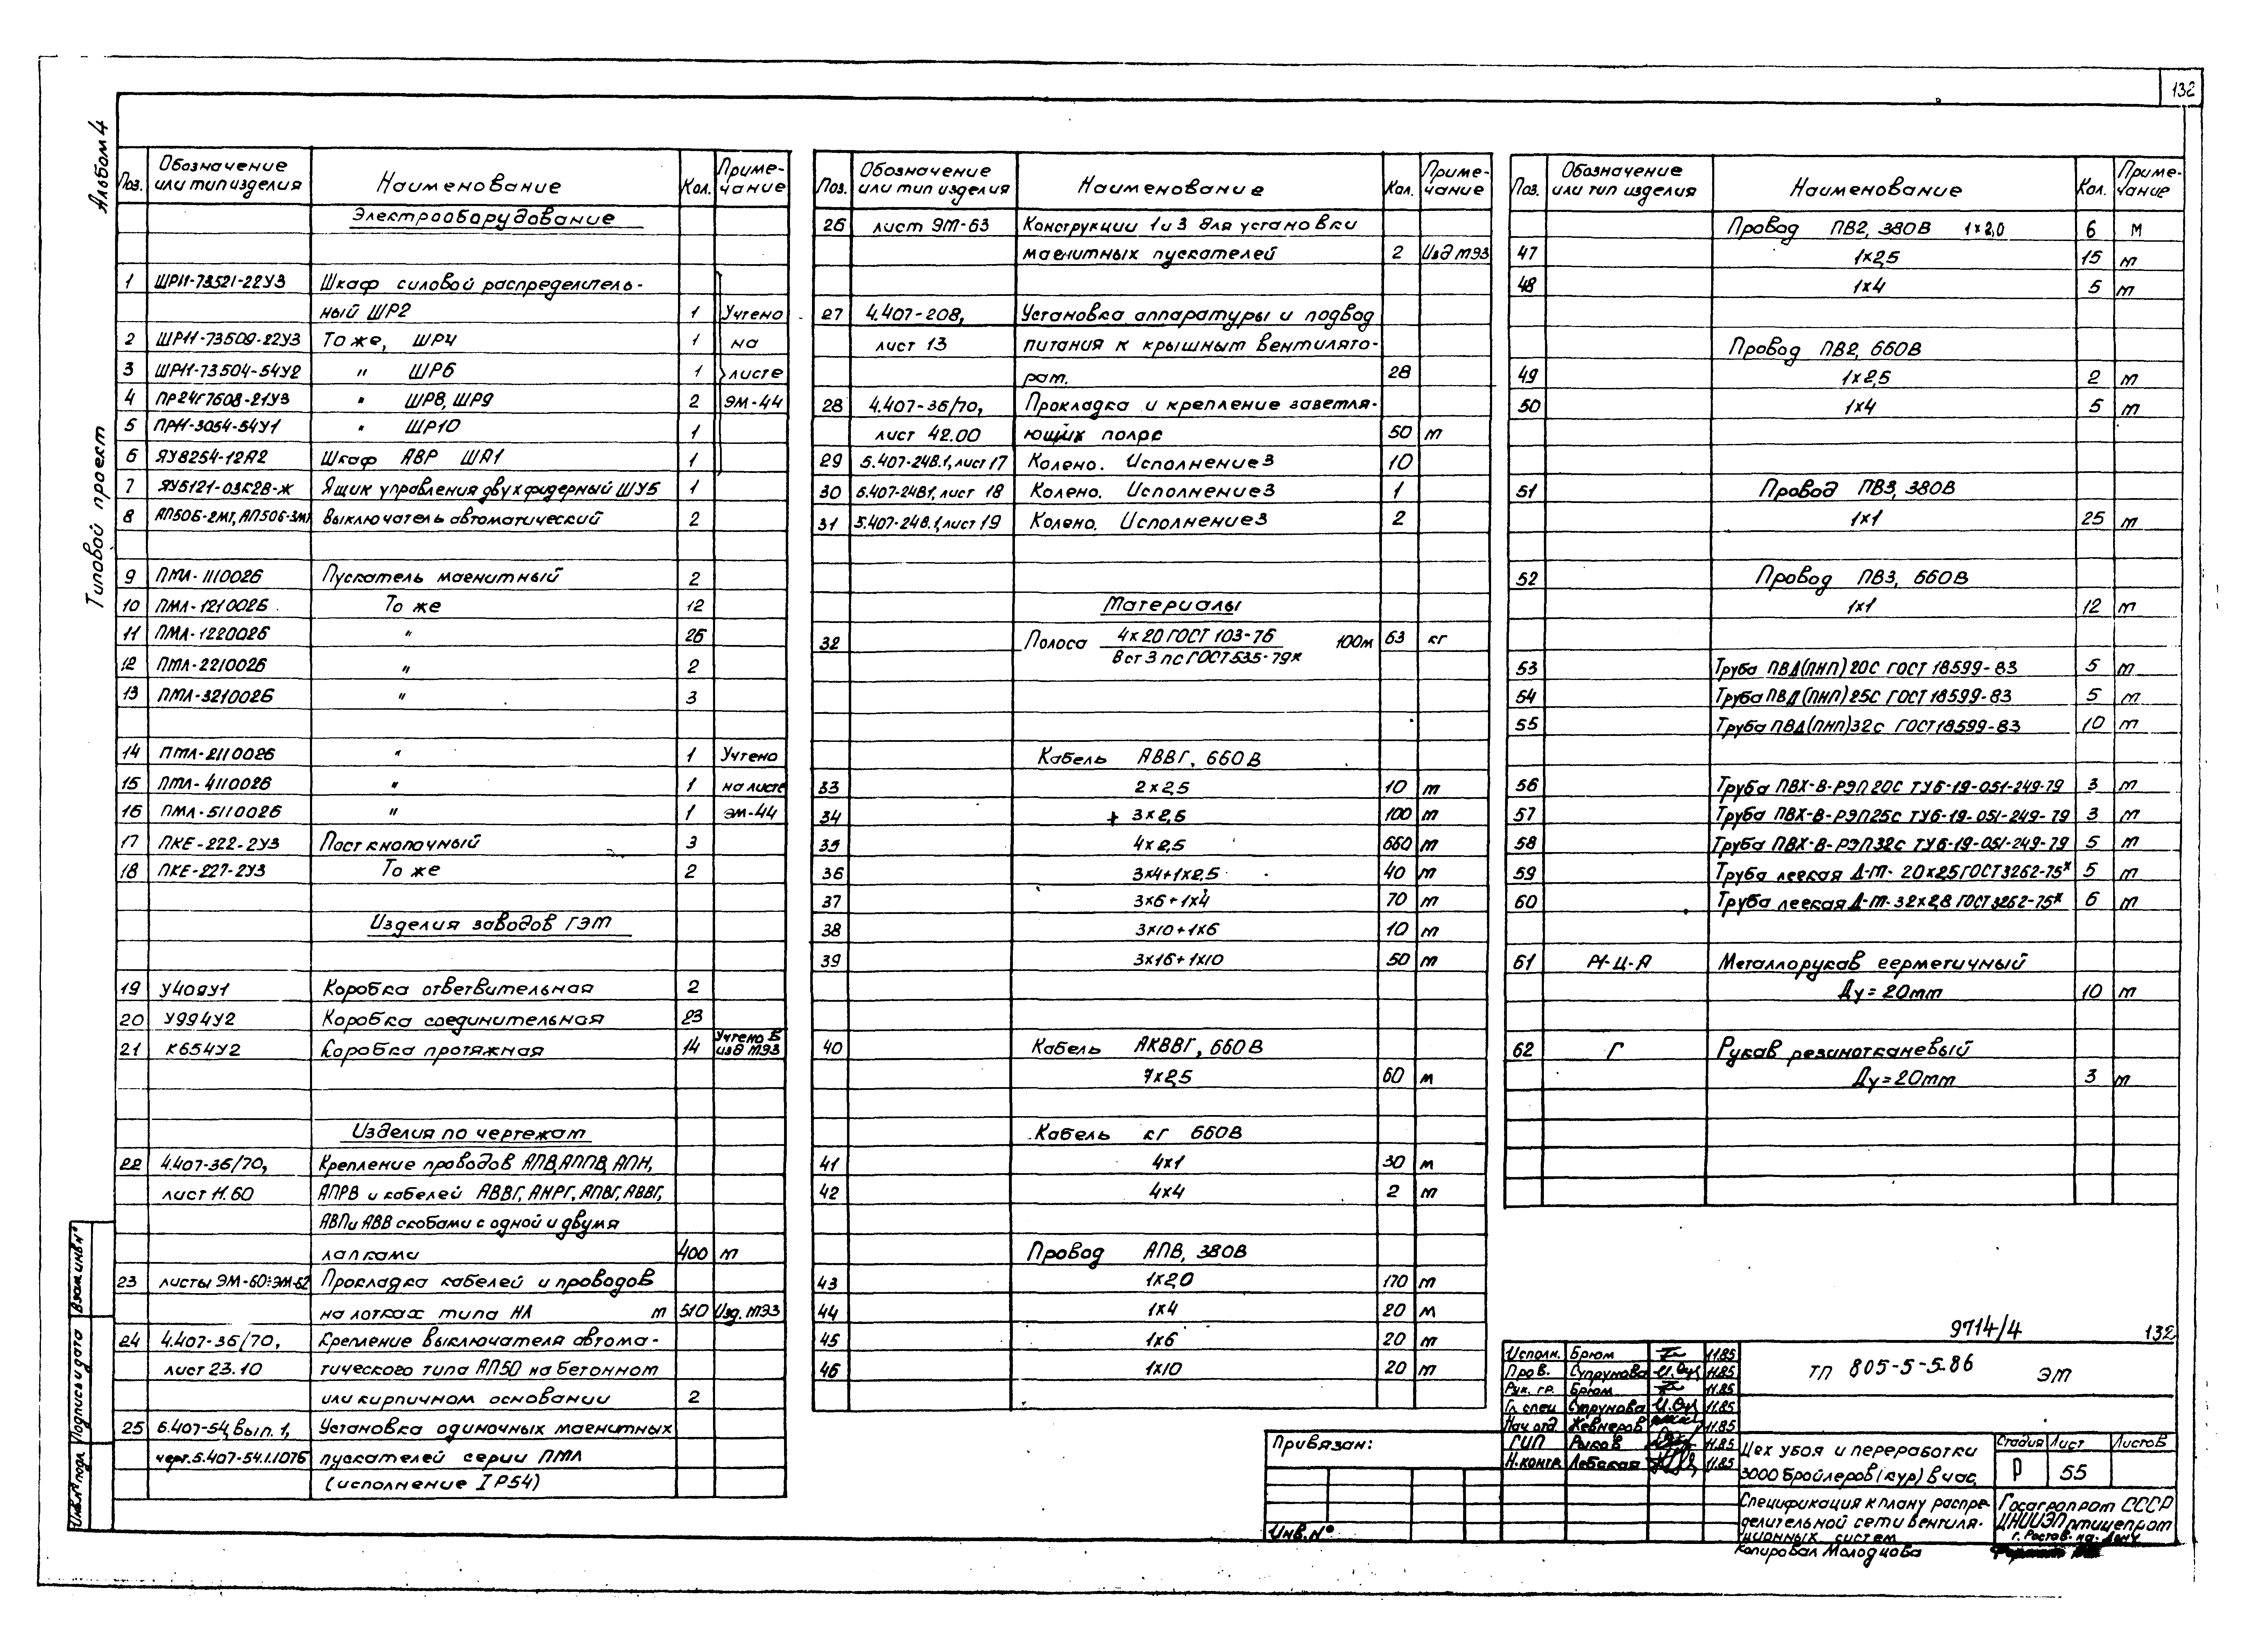 132
Альбом 4
Типовой проект
Поз. Обозначение или тип изделия Наименование Кол. Примечание
Электрооборудование
1 ШР11-73521-22У3 Шкаф силовой распределитель-
ный ШР2 1 Учтено
2 ШР11-73509-22У3 То же, ШР4 1 на
3 ШР11-73504-54У2 " ШР6 1 листе
4 ПР24Г7608-21У3 " ШР8, ШР9 2 ЭМ-44
5 ПР11-3054-54У1 " ШР10 1
6 ЯУ8254-12А2 Шкаф АВР ША1 1
7 ЯУ5121-03К2В-Ж Ящик управления двухфидерный ШУ5 1
8 АП50Б-2МТ, АП50Б-3МТ Выключатель автоматический 2
9 ПМЛ-111002Б Пускатель магнитный 2
10 ПМЛ-121002Б То же 12
11 ПМЛ-122002Б " 26
12 ПМЛ-221002Б " 2
13 ПМЛ-321002Б " 3
14 ПМЛ-211002Б " 1 Учтено
15 ПМЛ-411002Б " 1 на листе
16 ПМЛ-511002Б " 1 ЭМ-44
17 ПКЕ-222-2У3 Пост кнопочный 3
18 ПКЕ-227-2У3 То же 2
Изделия заводов ГЭМ
19 У409У1 Коробка ответвительная 2
20 У994У2 Коробка соединительная 23
21 К654У2 Коробка протяжная 14 Учтено в изд МЭЗ
Изделия по чертежам
22 4.407-36/70, Крепление проводов АПВ, АППВ, АПН,
лист 11.60 АПРВ и кабелей АВВГ, АНРГ, АПВГ, АВВГ,
АВП и АВВ скобами с одной и двумя
лапками 400 м
23 листы ЭМ-60÷ЭМ-62 Прокладка кабелей и проводов
на лотках типа НЛ м 510 Изд. МЭЗ
24 4.407-36/70, Крепление выключателя автома-
лист 23.10 тического типа АП50 на бетонном
или кирпичном основании 2
25 6.407-54, Вып. 1, Установка одиночных магнитных
черт. 5.407-54.1.107Б пускателей серии ПМЛ
(исполнение IP54)
Поз. Обозначение или тип изделия Наименование Кол. Примечание
26 лист ЭМ-63 Конструкции 1 и 3 для установки
магнитных пускателей 2 Изд МЭЗ
27 4.407-208, Установка аппаратуры и подвод
лист 13 питания к крышным вентилято-
рам. 28
28 4.407-36/70, Прокладка и крепление заземля-
лист 42.00 ющих полос 50 м
29 5.407-24В.1, лист 17 Колено. Исполнение 3 10
30 5.407-24В1, лист 18 Колено. Исполнение 3 1
31 5.407-24В.1, лист 19 Колено. Исполнение 3 2
Материалы
32 Полоса 4х20 ГОСТ 103-76 100м 63 кг
В ст 3 пс ГОСТ 535-79*
Кабель АВВГ, 660 В
33 2х2,5 10 м
34 3х2,5 100 м
35 4х2,5 660 м
36 3х4+1х2,5 40 м
37 3х6+1х4 70 м
38 3х10+1х6 10 м
39 3х16+1х10 50 м
40 Кабель АКВВГ, 660 В
7х2,5 60 м
Кабель кг 660В
41 4х1 30 м
42 4х4 2 м
Провод АПВ, 380В
43 1х2,0 170 м
44 1х4 20 м
45 1х6 20 м
46 1х10 20 м
Поз. Обозначение или тип изделия Наименование Кол. Примечание
Провод ПВ2, 380В 1х2,0 6 м
47 1х2,5 15 м
48 1х4 5 м
Провод ПВ2, 660В
49 1х2,5 2 м
50 1х4 5 м
51 Провод ПВ3, 380В
1х1 25 м
52 Провод ПВ3, 660В
1х1 12 м
53 Труба ПВД(ПНП) 20С ГОСТ 18599-83 5 м
54 Труба ПВД(ПНП) 25С ГОСТ 18599-83 5 м
55 Труба ПВД(ПНП)32с ГОСТ 18599-83 10 м
56 Труба ПВХ-В-РЭП 20С ТУ6-19-051-249-79 3 м
57 Труба ПВХ-В-РЭП25с ТУ6-19-051-249-79 3 м
58 Труба ПВХ-В-РЭП32с ТУ6-19-051-249-79 5 м
59 Труба легкая Д-М-20х2,5 ГОСТ3262-75* 5 м
60 Труба легкая Д-М-32х2,8 ГОСТ3262-75* 6 м
61 Р1-Ц-А Металлорукав герметичный
Ду=20мм 10 м
62 Г Рукав резинотканевый
Ду=20мм 3 м
9714/4 132
Исполн. Брюм 11.85
Пров. Супрунова 11.85
Рук. гр. Брюм 11.85
Гл. спец Супрунова 11.85
Нач. отд. Жевнеров 11.85
ГИП Рыков 11.85
Н. контр. Лебская 11.85
ТП 805-5-5.86 ЭМ
Цех убоя и переработки
3000 бройлеров (кур) в час
Стадия Лист Листов
Р 55
Спецификация к плану распре-
делительной сети вентиля-
ционных систем
Госагропром СССР
ЦНИИЭПптицепром
г. Ростов-на-Дону
Копировал Молодцова
Привязан:
Инв. N°
Взам. инв. N°
Подпись и дата
Инв. N° подл.